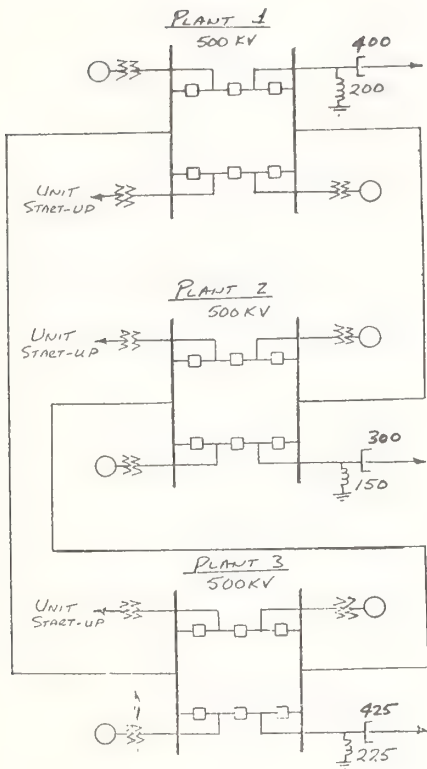 PLANT 1
500 KV
400
200
UNIT
START-UP
PLANT 2
500 KV
UNIT
START-UP
300
150
PLANT 3
500 KV
UNIT
START-UP
425
225